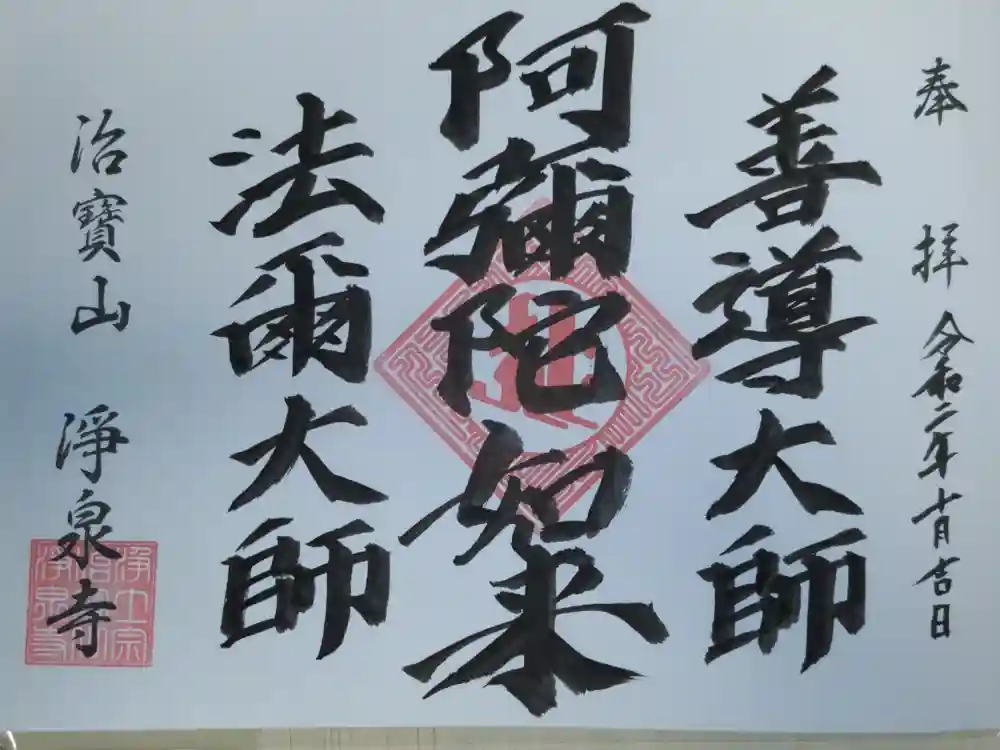 奉拝 令和二年十月吉日
善導大師
阿彌陀如来
法爾大師
治寶山 淨泉寺
浄土宗
浄泉寺